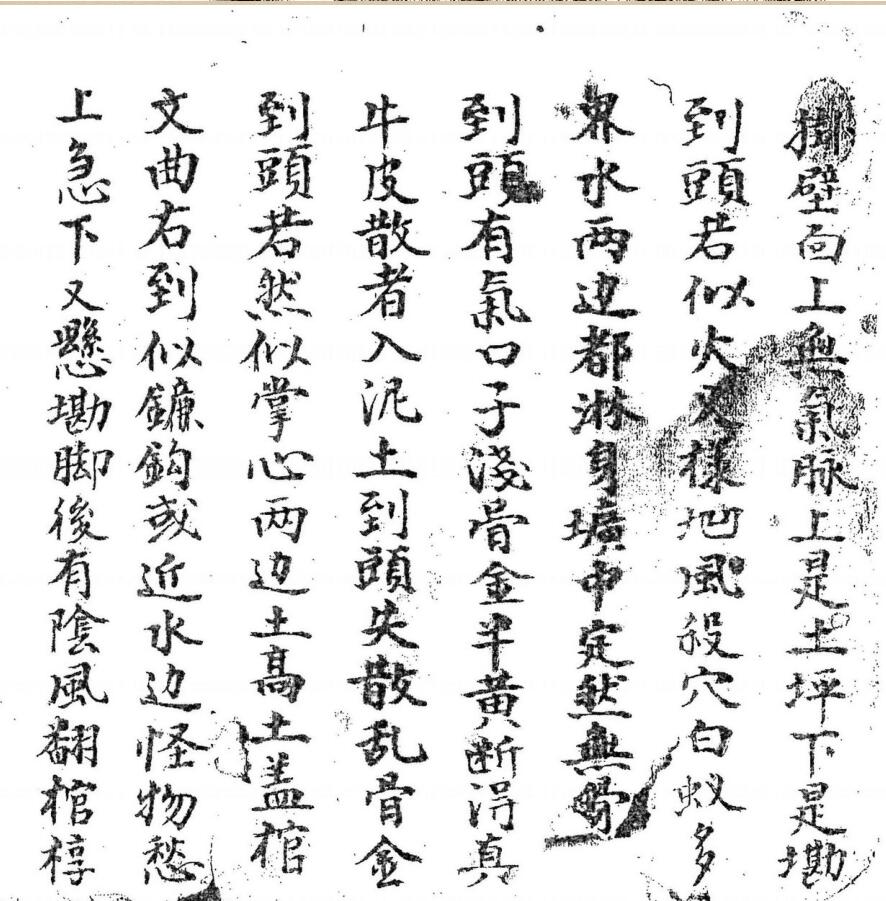 掛壁向上無氣脉上是土坪下是墈
到頭若似火叉樣地風殺穴白蚁多
界水両边都淋身壙中定然無骨
到頭有氣口子淺骨金半黃断淂真
牛皮散者入泥土到頭失散乱骨金
到頭若然似掌心両边土高土盖棺
文曲右到似鐮鈎或近水边怪物愁
上急下又懸墈脚後有陰風翻棺椁